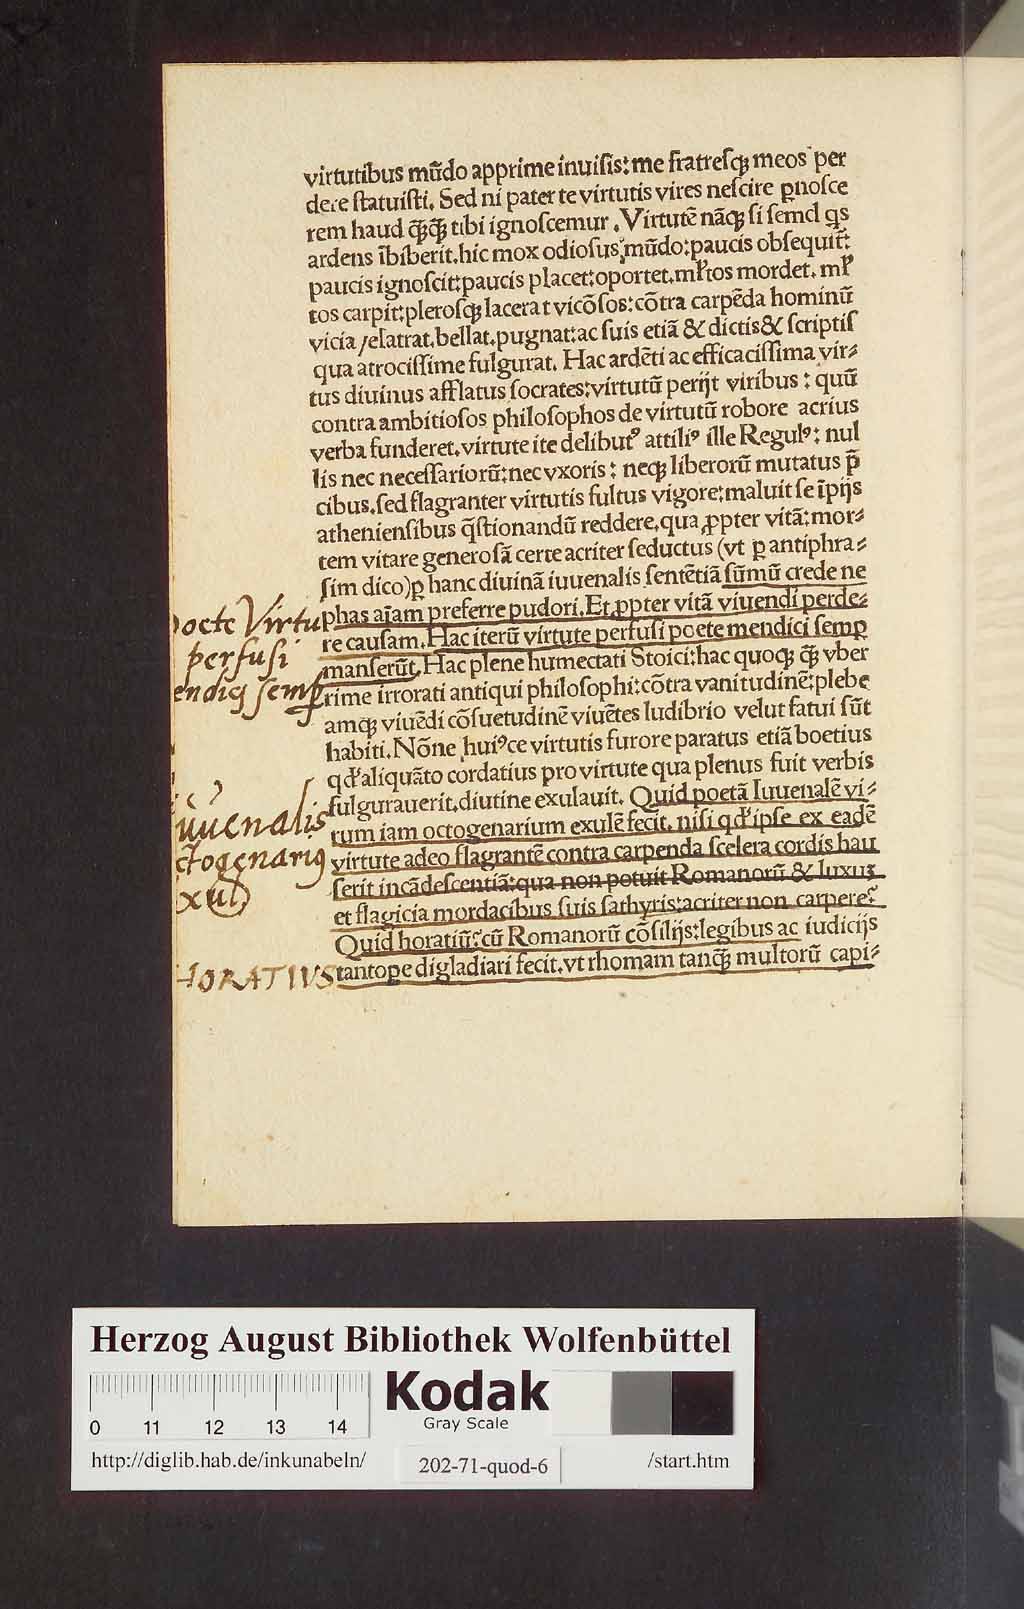 virtutibus mūdo apprime inuisis: me fratresqꝫ meos per
dere statuisti. Sed ni pater te virtutis vires nescire ꝑnosce
rem haud q̄q̄ꝫ tibi ignoscemur. Virtutē nāqꝫ si semel qs
ardens ībiberit. hic mox odiosus mūdo: paucis obsequit̄:
paucis ignoscit: paucis placet: oportet. mľtos mordet. mľ
tos carpit: plerosqꝫ lacerat vicōsos: cōtra carpēda hominū
vicia /elatrat. bellat. pugnat: ac suis etiā & dictis & scriptis
qua atrocissime fulgurat. Hac ardēti ac efficacissima vir⸗
tus diuinus afflatus socrates: virtutū perijt viribus: quū
contra ambitiosos philosophos de virtutū robore acrius
verba funderet. virtute ite delibutꝰ attiliꝰ ille Regulꝰ: nul
lis nec necessariorū: nec vxoris: neqꝫ liberorū mutatus p̄
cibus. sed flagranter virtutis fultus vigore: maluit se īpijs
atheniensibus q̄stionandū reddere. qua ꝓpter vitā: mor⸗
tem vitare generosā certe acriter seductus (vt ꝑ antiphra⸗
sim dico) ꝑ hanc diuinā iuuenalis sentētiā sūmū crede ne
phas aīam preferre pudori. Et ꝓpter vitā viuendi perde⸗
re causam. Hac iterū virtute perfusi poete mendici semꝑ
manserūt. Hac plene humectati Stoici: hac quoqꝫ q̄ꝫ vber
rime irrorati antiqui philosophi: cōtra vanitudinē: plebe
amqꝫ viuēdi cōsuetudinē viuētes ludibrio velut fatui sūt
habiti. Nōne huiꝰce virtutis furore paratus etiā boetius
qđ aliquāto cordatius pro virtute qua plenus fuit verbis
fulgurauerit. diutine exulauit. Quid poetā Iuuenalē vi⸗
rum iam octogenarium exulē fecit. nisi qđ ipse ex eadē
virtute adeo flagrantē contra carpenda scelera cordis hau
serit incādescentiā: qua non potuit Romanorū & luxuꝫ
et flagicia mordacibus suis sathyris: acriter non carpere?
Quid horatiū? cū Romanorū cōsilijs: legibus ac iudicijs
tantope digladiari fecit. vt rhomam tanq̄ꝫ multorū capi⸗
oete Virtu
perfusi
endicj semꝑ
uuenalis
ctogenariꝰ
xul
HORATIUS
Herzog August Bibliothek Wolfenbüttel
0 11 12 13 14
Kodak
Gray Scale
http://diglib.hab.de/inkunabeln/
202-71-quod-6
/start.htm